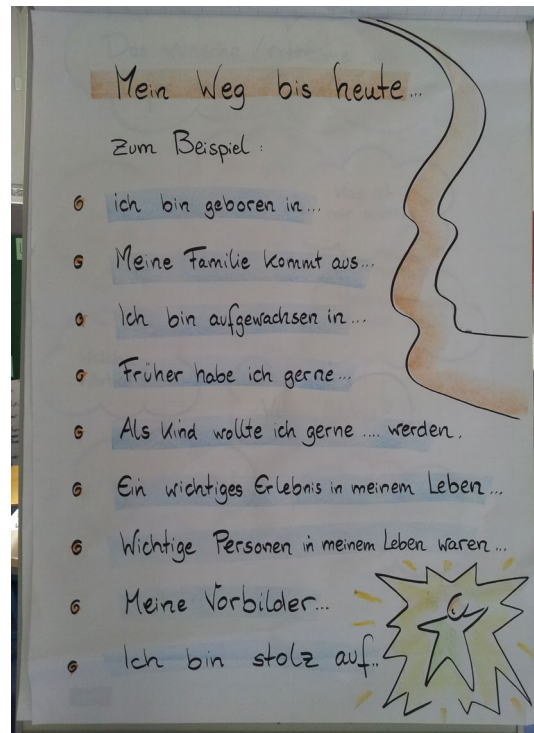 Mein Weg bis heute...
Zum Beispiel:
ich bin geboren in...
Meine Familie kommt aus...
Ich bin aufgewachsen in...
Früher habe ich gerne...
Als Kind wollte ich gerne .... werden.
Ein wichtiges Erlebnis in meinem Leben ...
Wichtige Personen in meinem Leben waren ...
Meine Vorbilder...
Ich bin stolz auf..